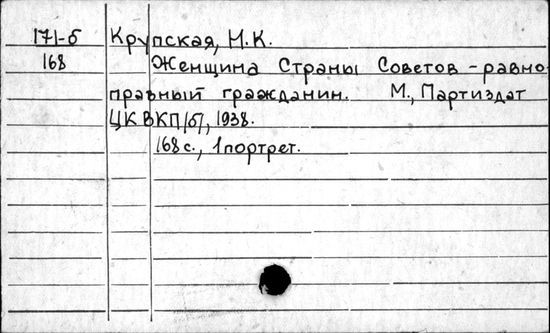 171-б Крупская, Н.К.
168 Женщина Страны Советов - равно-
правный гражданин. М., Партиздат
ЦК ВКП/б/, 1938.
168 с., 1 портрет.